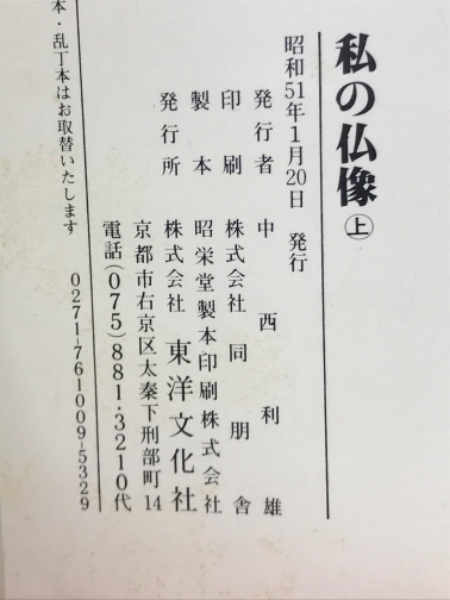 私の仏像 上
昭和51年1月20日 発行
発行者 中西利雄
印刷 株式会社同朋舎
製本 昭栄堂製本印刷株式会社
発行所 株式会社 東洋文化社
京都市右京区太秦下刑部町14
電話(075)881・3210代
本・乱丁本はお取替いたします 0271-761009-5329